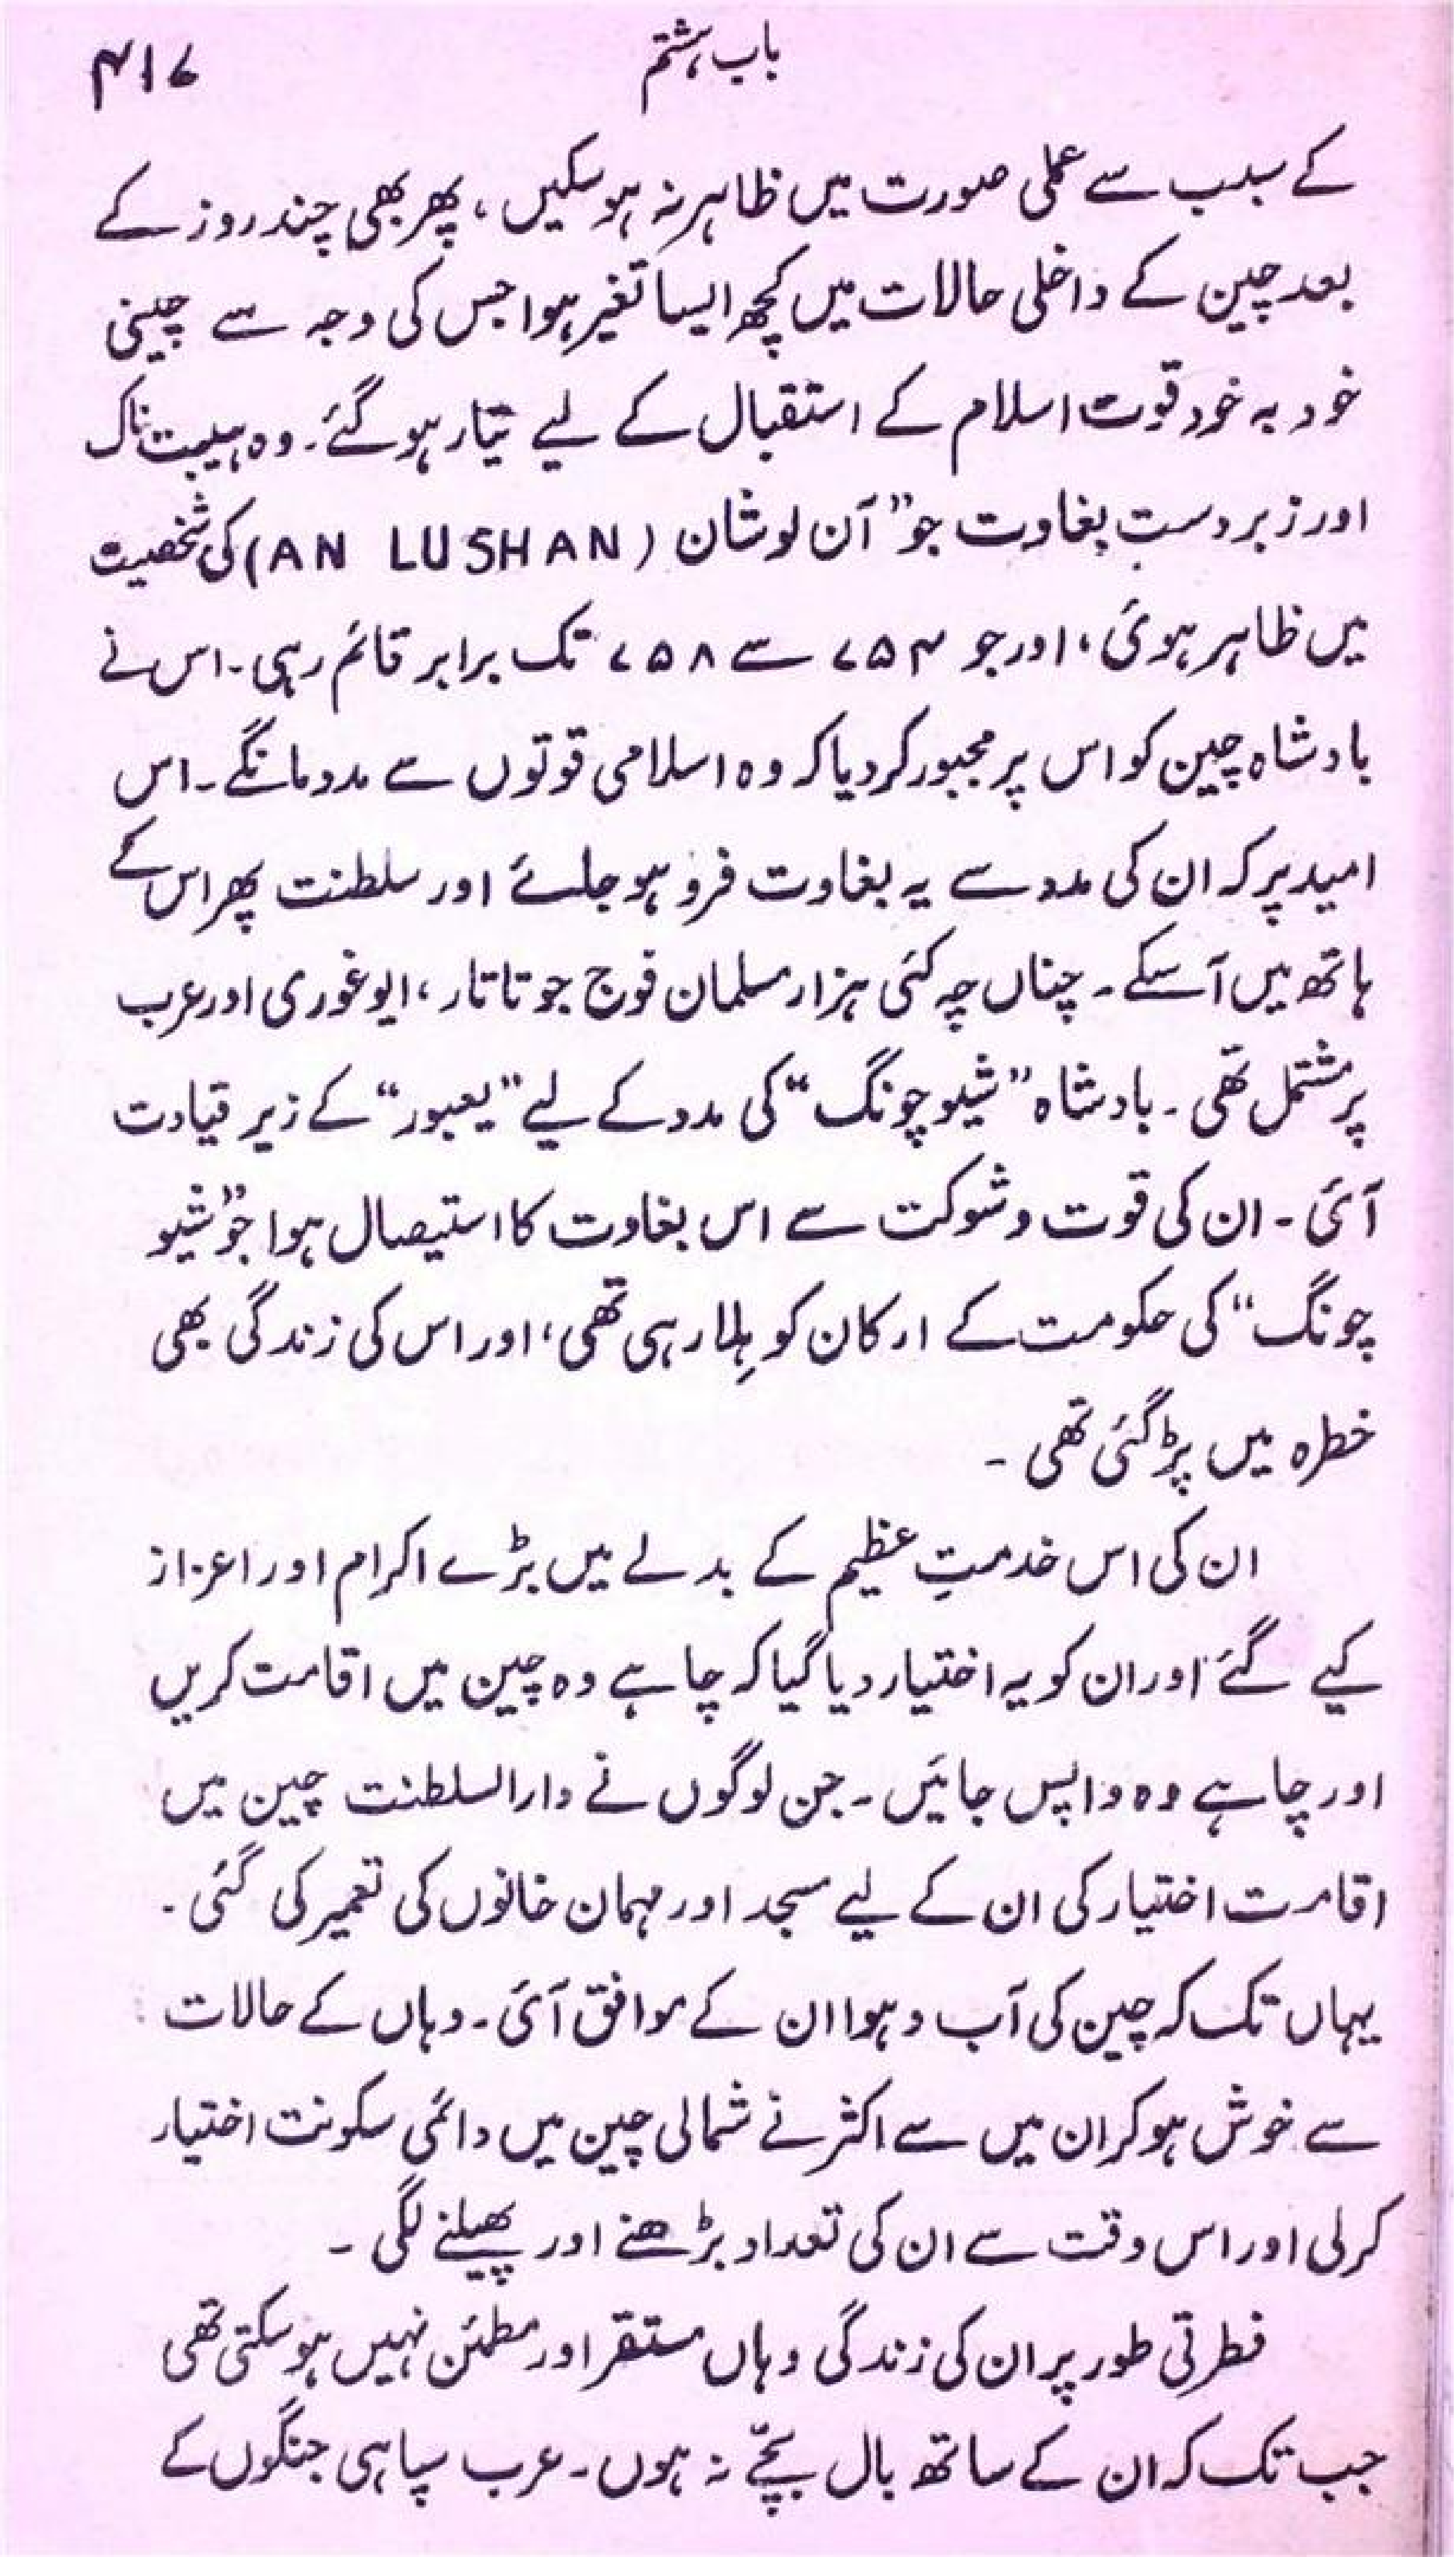 باب ہشتم ۴۱۷
کے سبب سے عملی صورت میں ظاہر نہ ہو سکیں ، پھر بھی چند روز کے
بعد چین کے داخلی حالات میں کچھ ایسا تغیر ہوا جس کی وجہ سے چینی
خود بہ خود قوت اسلام کے استقبال کے لیے تیّار ہو گئے ۔ وہ ہیبت ناک
اور زبردست بغاوت جو ”آن لوشان (AN LUSHAN) کی شخصیت
میں ظاہر ہوئی ، اور جو ۷۵۴ سے ۷۵۸ تک برابر قائم رہی ۔ اس نے
بادشاہ چین کو اس پر مجبور کر دیا کہ وہ اسلامی قوتوں سے مدد مانگے ۔ اس
امید پر کہ ان کی مدد سے یہ بغاوت فرو ہو جائے اور سلطنت پھر اس کے
ہاتھ میں آ سکے ۔ چناں چہ کئی ہزار مسلمان فوج جو تاتار ، ایوغوری اور عرب
پر مشتمل تھی ۔ بادشاہ ”شیو چونگ“ کی مدد کے لیے ”یعبور“ کے زیر قیادت
آئی ۔ ان کی قوت و شوکت سے اس بغاوت کا استیصال ہوا جو ”شیو
چونگ“ کی حکومت کے ارکان کو ہِلا رہی تھی ، اور اس کی زندگی بھی
خطرہ میں پڑ گئی تھی ۔
ان کی اس خدمتِ عظیم کے بدلے میں بڑے اکرام اور اعزاز
کیے گئے اور ان کو یہ اختیار دیا گیا کہ چاہے وہ چین میں اقامت کریں
اور چاہے وہ واپس جائیں ۔ جن لوگوں نے دارالسلطنت چین میں
اقامت اختیار کی ان کے لیے مسجد اور مہمان خانوں کی تعمیر کی گئی ۔
یہاں تک کہ چین کی آب و ہوا ان کے موافق آئی ۔ وہاں کے حالات
سے خوش ہو کر ان میں سے اکثر نے شمالی چین میں دائمی سکونت اختیار
کر لی اور اس وقت سے ان کی تعداد بڑھنے اور پھیلنے لگی ۔
فطرتی طور پر ان کی زندگی وہاں مستقر اور مطمئن نہیں ہو سکتی تھی
جب تک کہ ان کے ساتھ بال بچّے نہ ہوں ۔ عرب سپاہی جنگوں کے